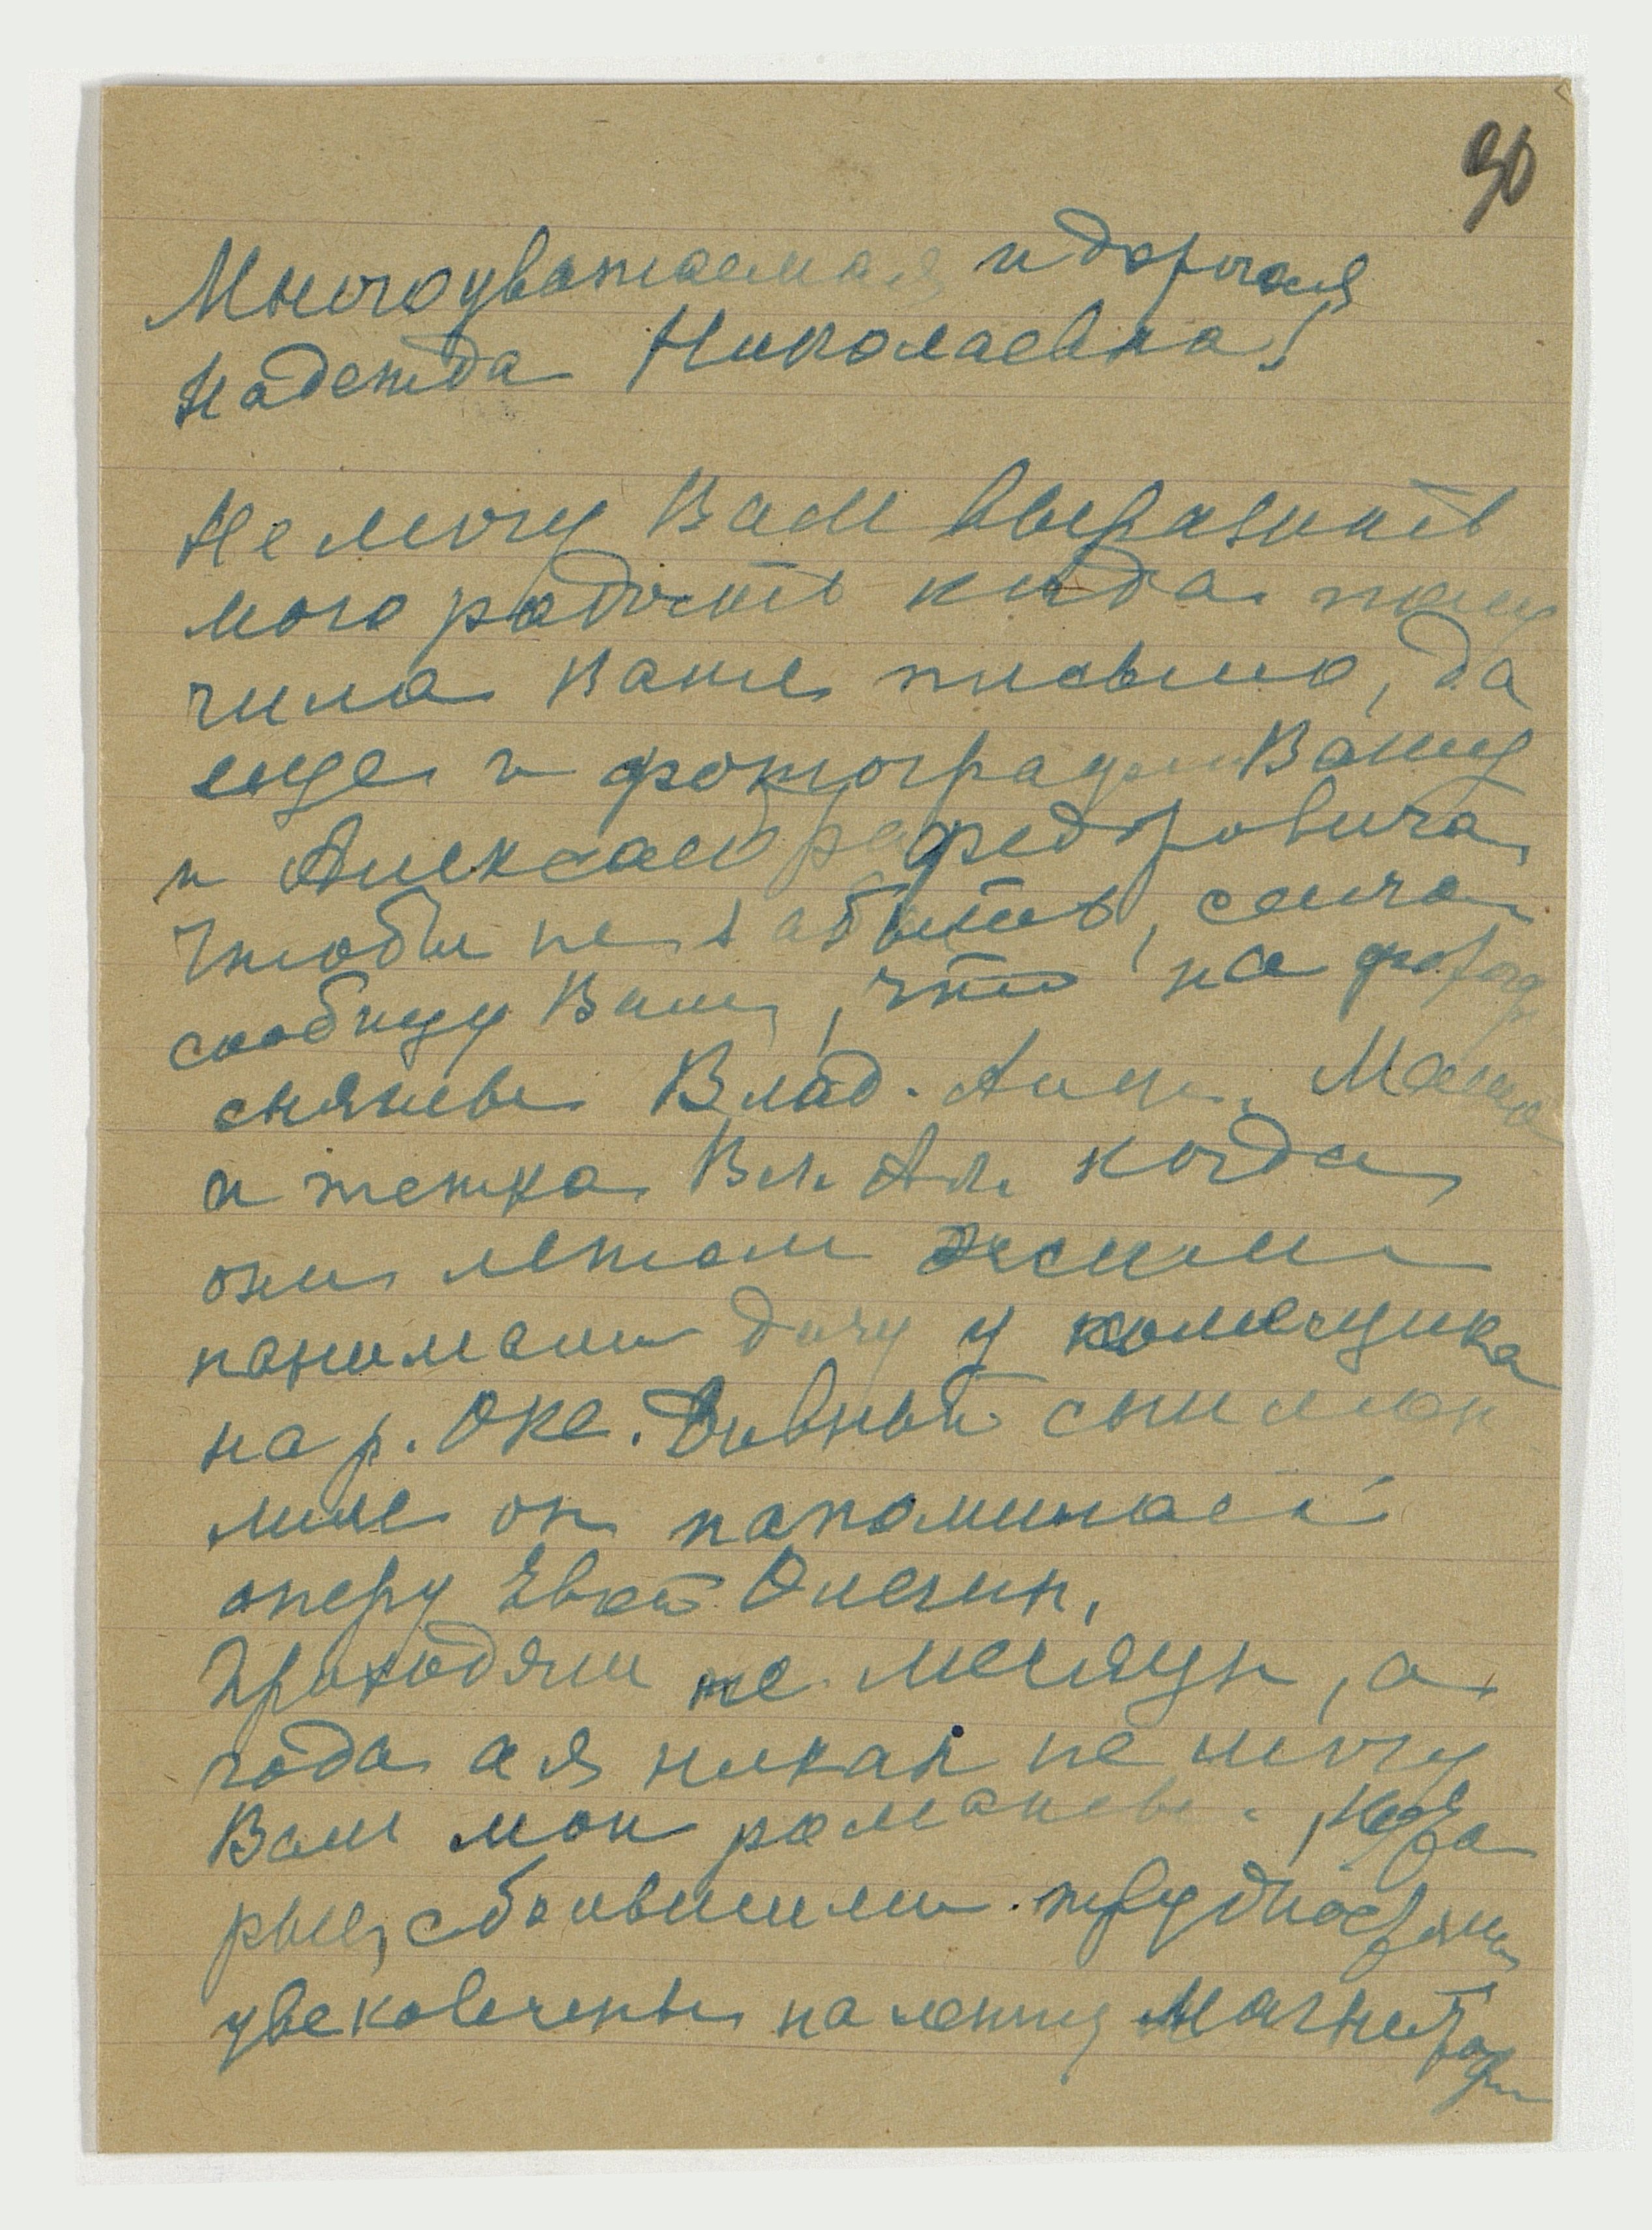 90
Многоуважаемая и дорогая
Надежда Николаевна!
Не могу Вам выразить
мою радость когда полу
чила Ваше письмо, да
еще и фотографии Вашу
и Александра Федоровича,
Чтобы не забыть, сейча
сообщу Вам, что на фотогр
сняты Влад. Алек. Мама
и тетка Вл. Ал. когда
они летом жили
понимали дачу у помещика
на р. Оке. Дивный снимок
мне он напоминает
оперу Евген Онегин.
Проходят не месяцы, а
года а я никак не могу
Вам мои романсы, кото
рые, с большими трудностями
увековечены на ленту Магнитофон